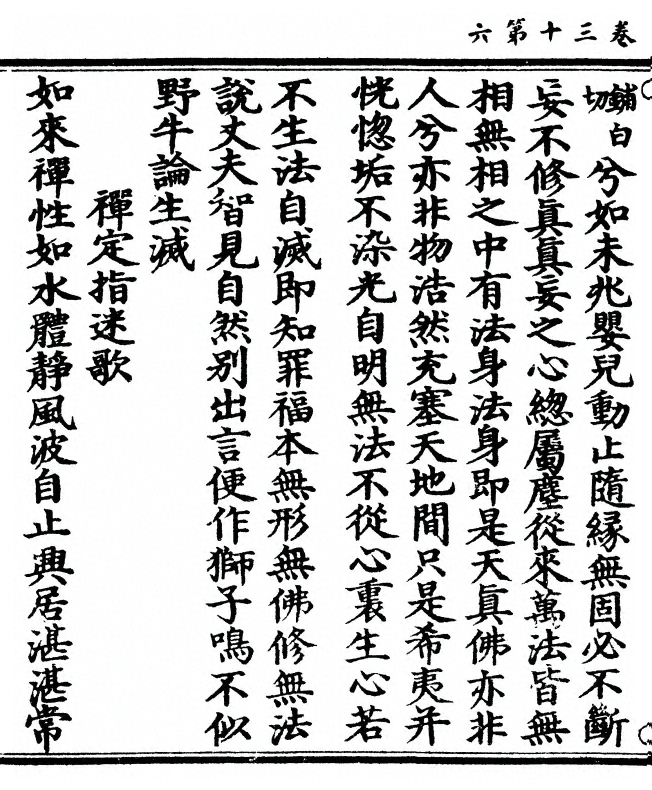 卷三十第六
鋪切白兮如未兆嬰兒動止隨緣無固必不斷
妄不修眞眞妄之心總屬塵從來萬法皆無
相無相之中有法身法身即是天眞佛亦非
人兮亦非物浩然充塞天地間只是希夷并
恍惚垢不染光自明無法不從心裏生心若
不生法自滅即知罪福本無形無佛修無法
說丈夫智見自然別出言便作獅子鳴不似
野牛論生滅
禪定指迷歌
如來禪性如水體靜風波自止興居湛湛常